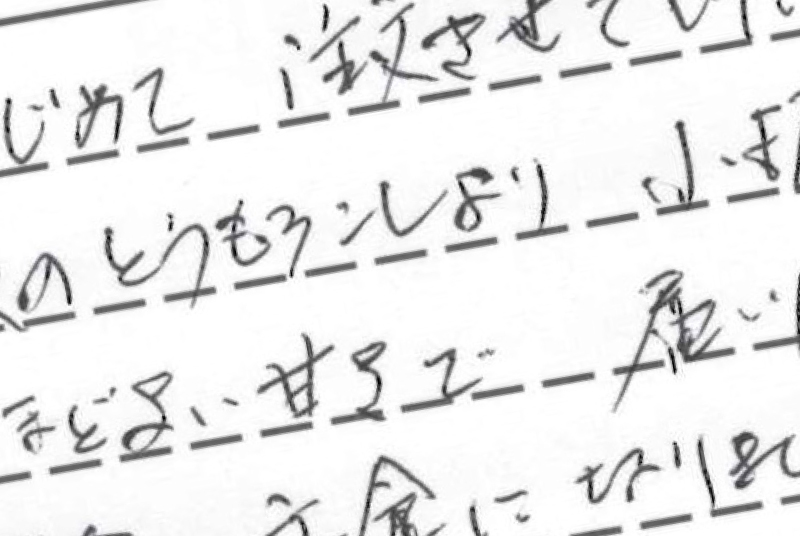 じめて 注文させてい
のとうもろこしより 小
ほど良い甘さで 届い
食にぴ